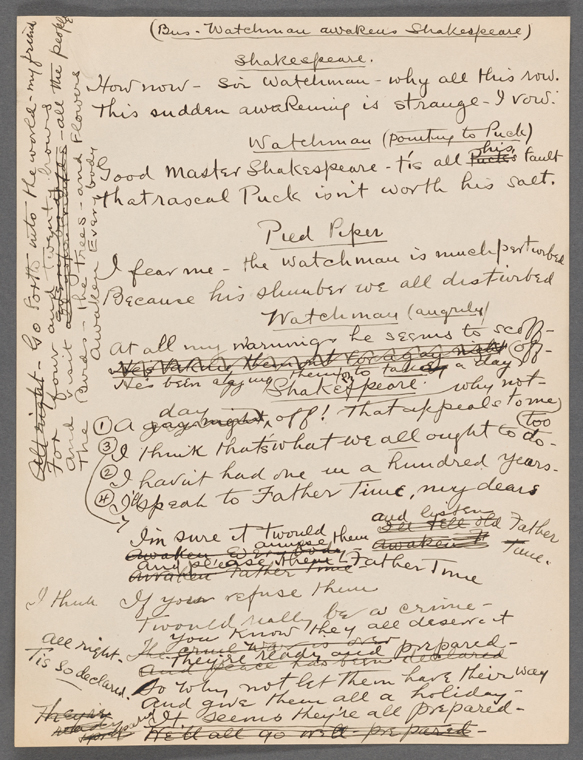 (Bus - Watchman awakens Shakespeare)
Shakespeare.
How now - Sir Watchman - why all this row.
This sudden awakening is strange - I vow.
Watchman (pointing to Puck)
Good Master Shakespeare - tis all Puck's his fault
That rascal Puck isn't worth his salt.
Pied Piper
I fear me - the Watchman is much perturbed
Because his slumber we all disturbed
Watchman (angrily)
At all my warnings he seems to scoff -
He's been urging them to take a day off -
Shakespeare.
why not -
① A gay night day off! That appeals to me
③ I think that's what we all ought to do - too
② I havn't had one in a hundred years -
④ I'll speak to Father Time, my dears
I'm sure it twould amuse them
and listen Father Time.
I'll tell old
awaken
Awaken Everybody
and please them
Awaken Father Time
Father Time
I think If you refuse them
Twould really be a crime -
You know they all deserve it
They're ready and prepared -
and peace has been declared
All right - Tis so declared.
So why not let them have their way
And give them all a holiday -
It seems they're all prepared -
They're ready
We'll all go well - prepared -
All right - Go forth into the world - my friend
For four and twenty hours
And visit all the people
The Birds - the Trees - and Flowers
Awaken Everybody